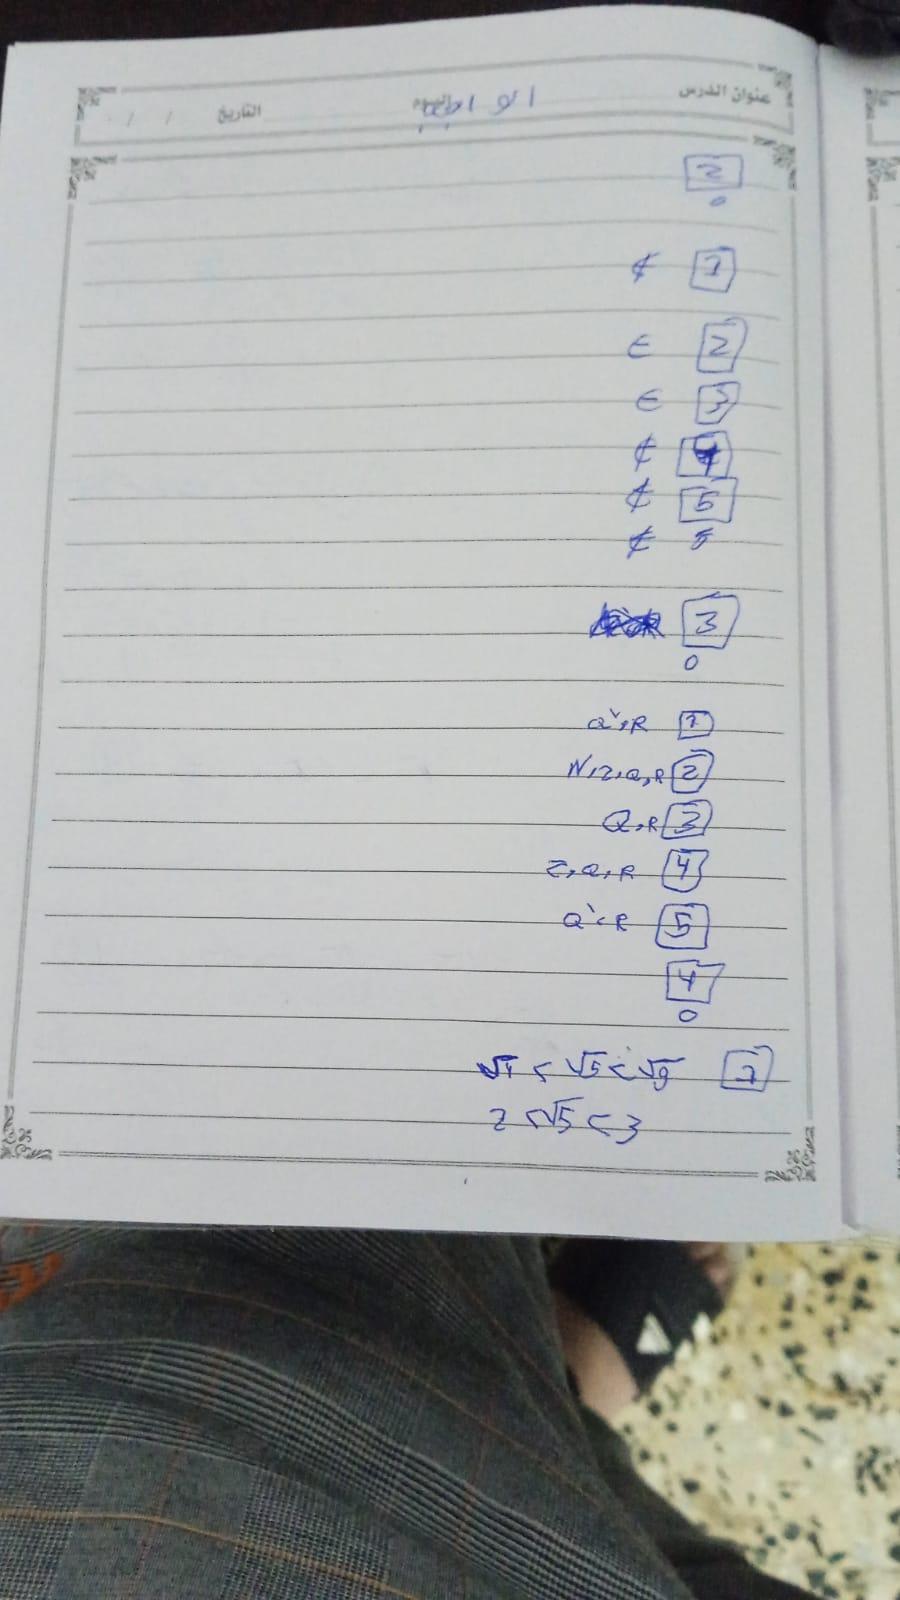 عنوان الدرس الواجب اليوم التاريخ / /
2
1 ∉
2 ∈
3 ∈
4 ∉
5 ∉
5 ∉
3
1 Q`,R
2 N,Z,Q,R
3 Q,R
4 Z,Q,R
5 Q`,R
4
1 √4 < √5 < √9
2 < √5 < 3